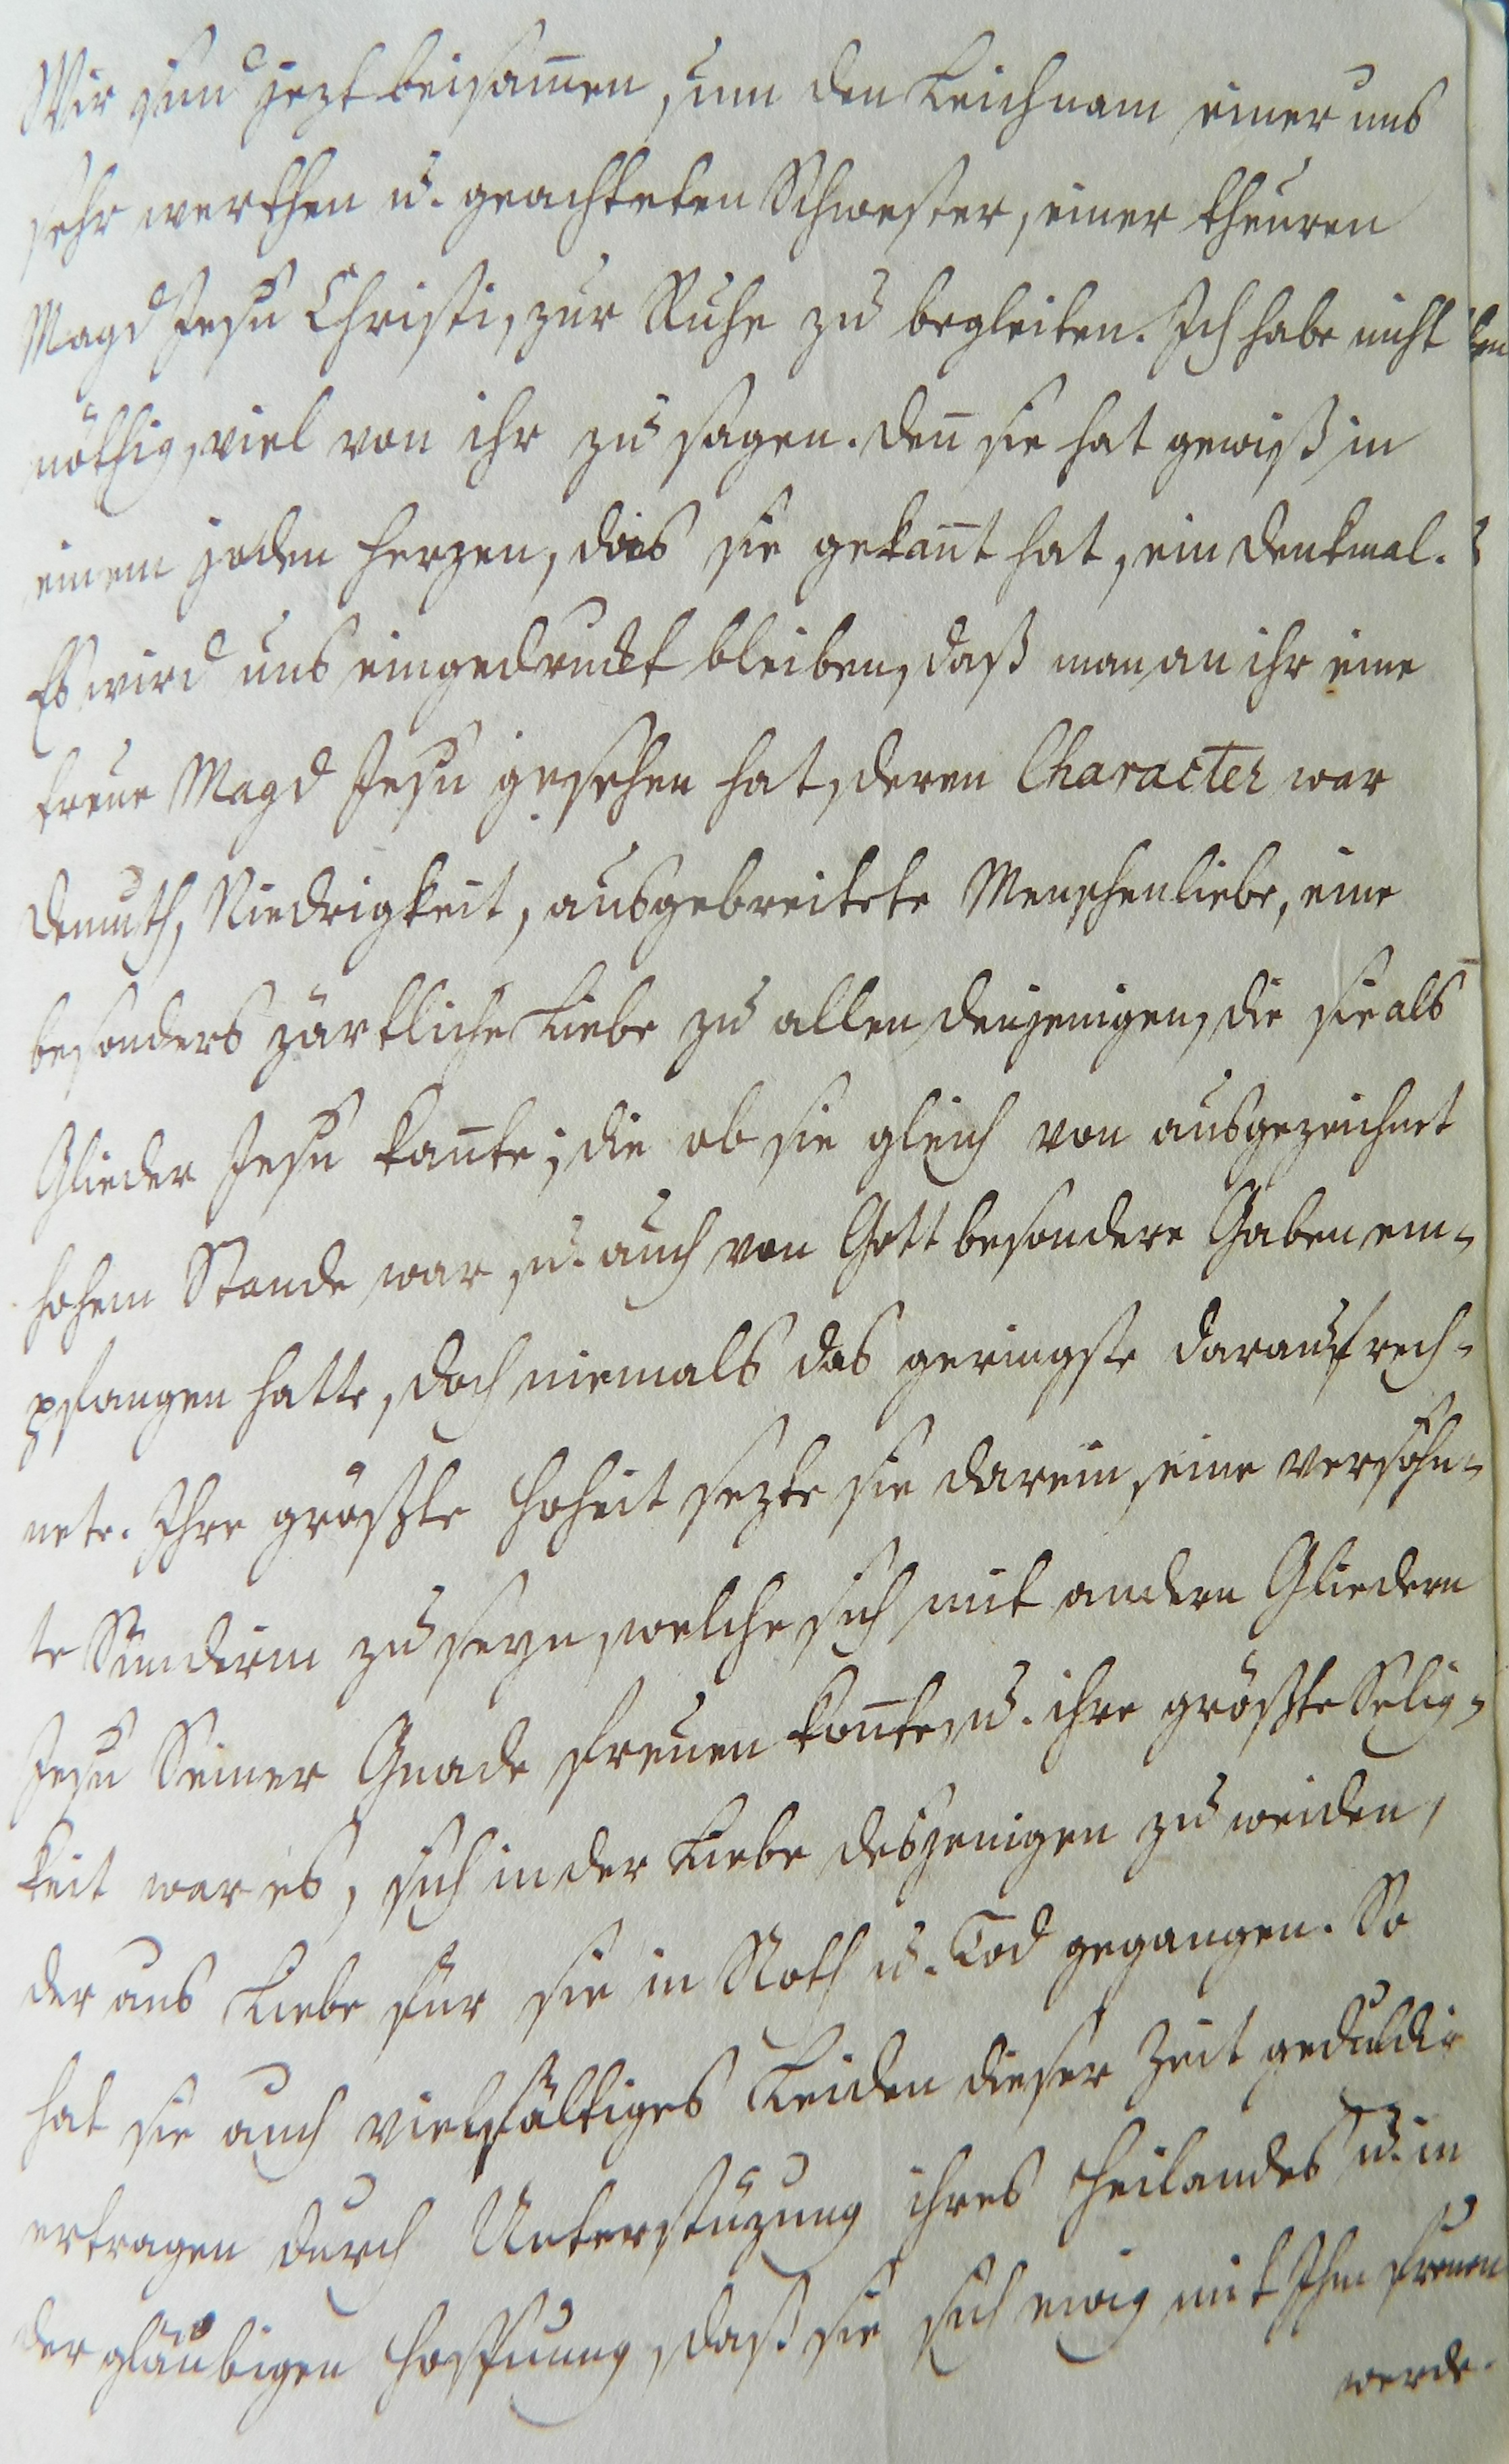 Wir sind jezt beisam̄en, um den Leichnam einer uns
sehr werthen u. geachteten Schwester, einer theuren
Magd Jesu Christi, zur Ruhe zu begleiten. Ich habe nicht
nöthig, viel von ihr zu sagen. den̄ sie hat gewiß in
einem jeden Herzen, das sie gekan̄t hat, ein Denkmal.
Es wird uns eingedruckt bleiben, daß man an ihr eine
treue Magd Jesu gesehen hat, deren Character war
Demuth, Niedrigkeit, ausgebreitete Menschenliebe, eine
besonders zärtliche Liebe zu allen denjenigen, die sie als
Glieder Jesu kan̄te; die ob sie gleich von ausgezeichnet
hohem Stande war, u. auch von Gott besondere Gaben em-
pfangen hatte, doch niemals das geringste darauf rech-
nete. Ihre größte Hoheit sezte sie darein, eine versöhn-
te Sünderin zu seyn, welche sich mit andern Gliedern
Jesu Seiner Gnade freuen kon̄te, u. ihre größte Selig-
keit war es, sich in der Liebe desjenigen zu weiden,
der aus Liebe für sie in Noth u. Tod gegangen. So
hat sie auch vielfältiges Leiden dieser Zeit geduldig
ertragen durch Unterstüzung ihres Heilandes u. in
der gläubigen Hoffnung, daß sie sich ewig mit Ihm freuen
werde.